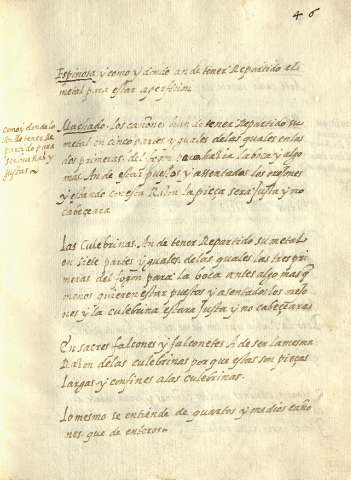 46
Espinosa y como y donde an de tener Repartido el
metal para estar a perficion
como y donde lo
an de tener Re
partido para
ser una Ral y
justas
Machado. los cañones han de tener Repartido su
metal en cinco partes yguales de las quales en las
dos primeras del fogon para hazia la boca y algo
mas. An de estar puestos y assentados los muñones
y estando con esta Razon la pieça sera justa y no
cabeçeara
Las Culebrinas. An de tener Repartido su metal
en siete partes yguales. de las quales las tres pri
meras del fogon para la boca antes algo mas q
menos quieren estar puestos y asentados los muño
nes y la culebrina estara Justa y no cabeçeara
En sacres falcones y falconetes A de ser la mesma
Razon de las culebrinas porque estas son pieças
largas y confines a las culebrinas.
Lo mesmo se entiende de quartos y medios caño
nes que de enteros